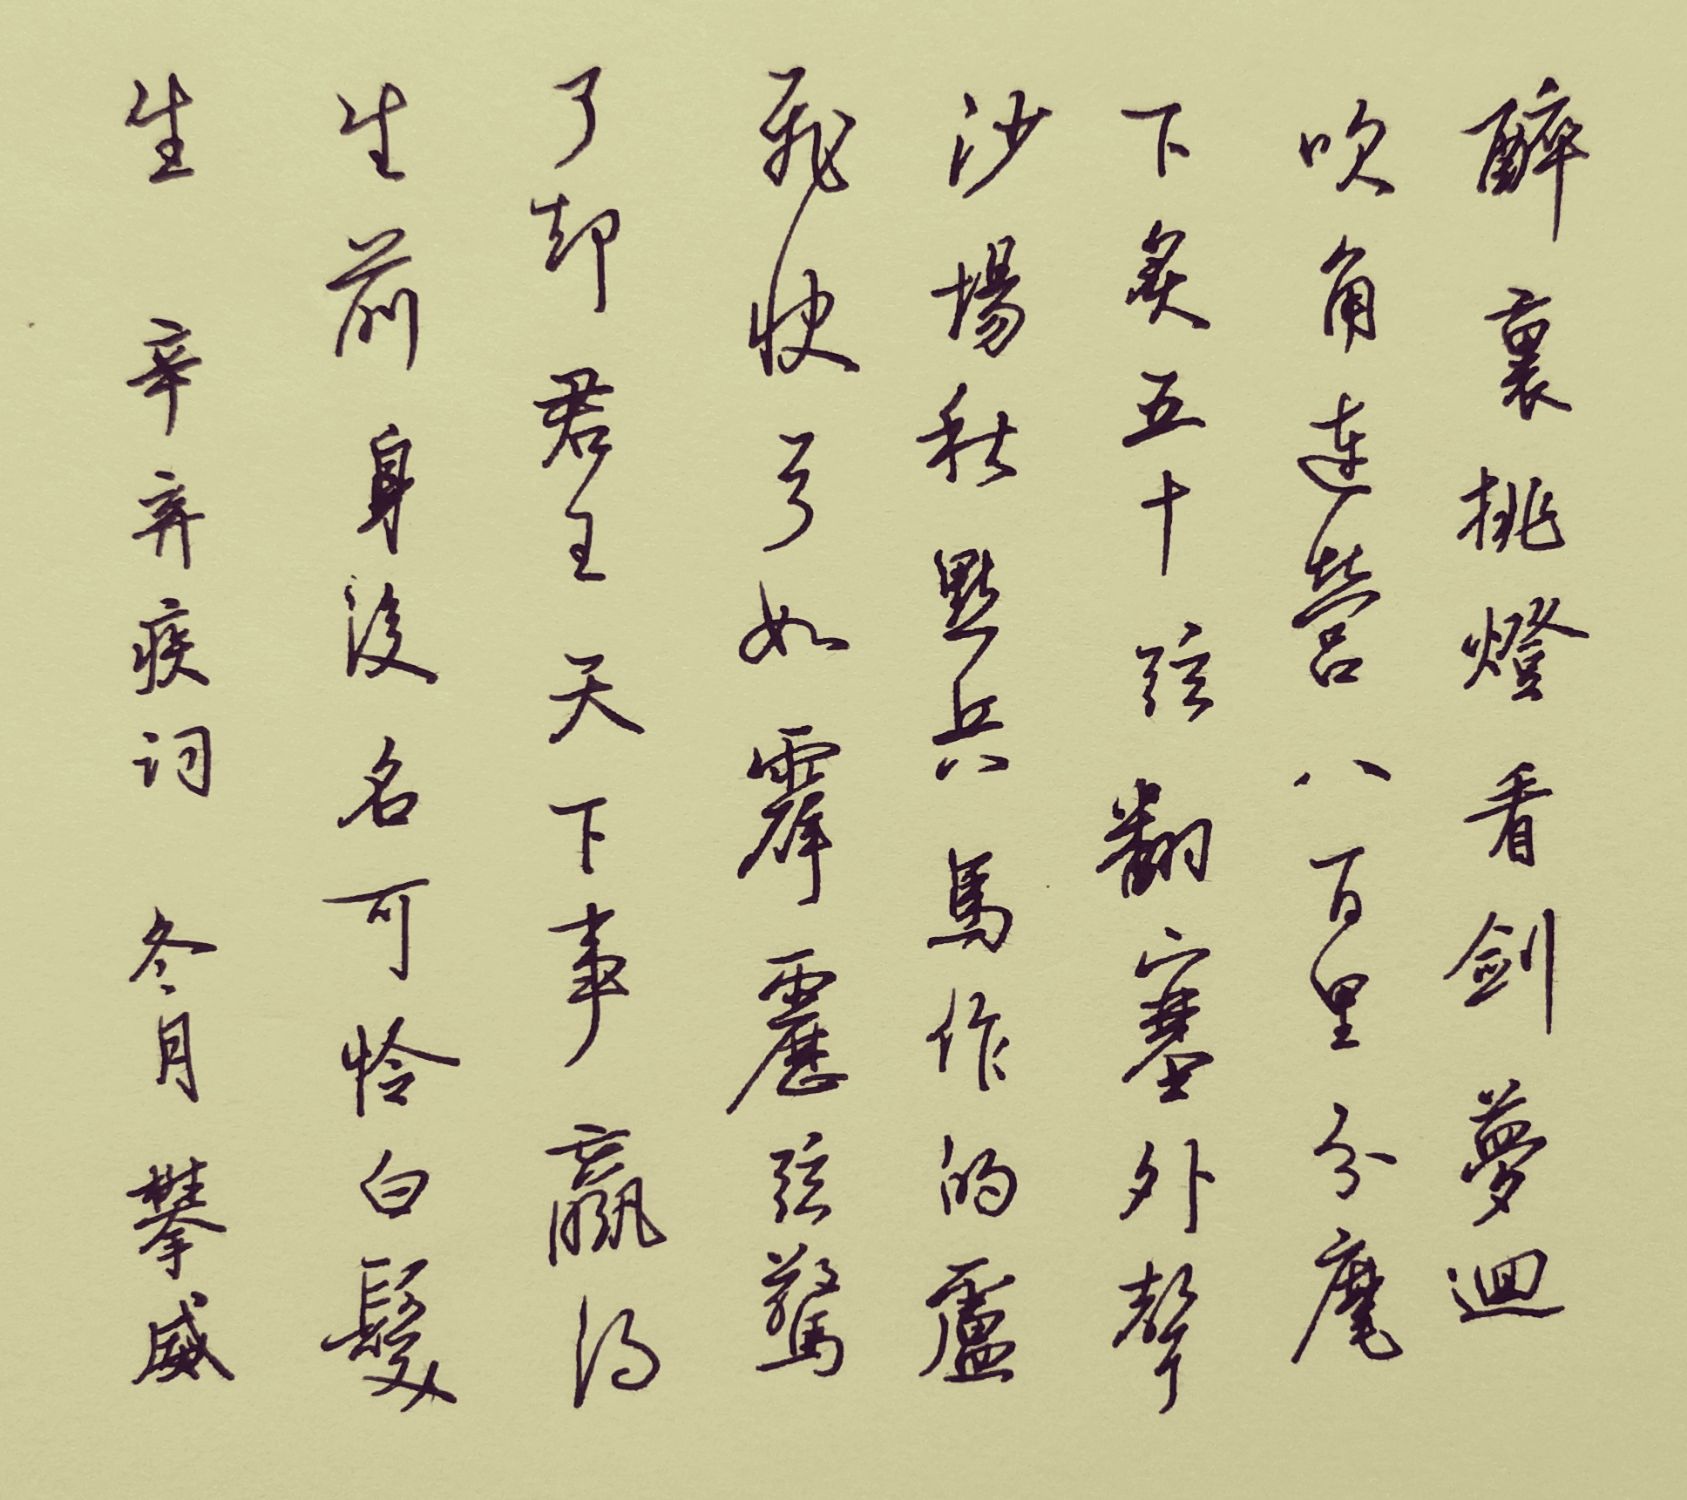 醉裏挑燈看劍夢迴
吹角連營八百里分麾
下炙五十弦翻塞外聲
沙場秋點兵馬作的盧
飛快弓如霹靂弦驚
了却君王天下事贏得
生前身後名可怜白髮
生 辛弃疾词 冬月攀威